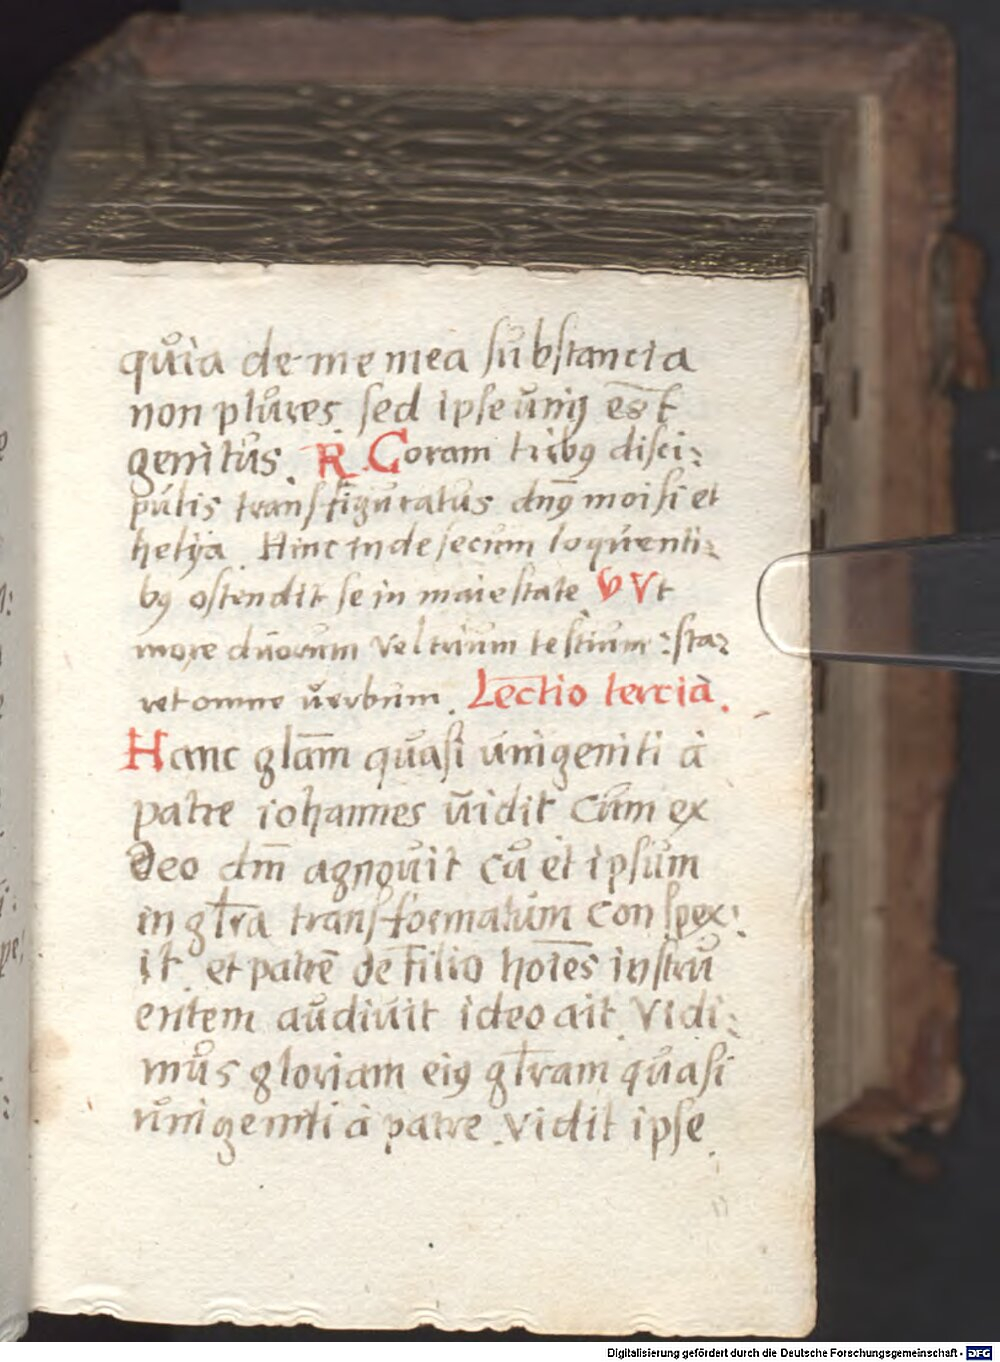 quia de me mea substancia
non plures sed ipse unig est
genitus. R. Coram tribꝯ disci:
pulis transfiguratus dnꝯ moisi et
helya. Hinc inde secum loquenti:
bꝯ ostendit se in maiestate V Vt
more duorum vel trium testium: sta:
ret omne verbum. Lectio tercia.
Hanc glam quasi unigeniti à
patre iohannes vidit cum ex
deo dm agnouit cū et ipsum
in glra transformatum conspex:
it. et patrē de filio hoīes instru
entem audiuit ideo ait Vidi:
mus gloriam eiꝯ glram quasi
unigeniti à patre. vidit ipse
Digitalisierung gefördert durch die Deutsche Forschungsgemeinschaft - DFG